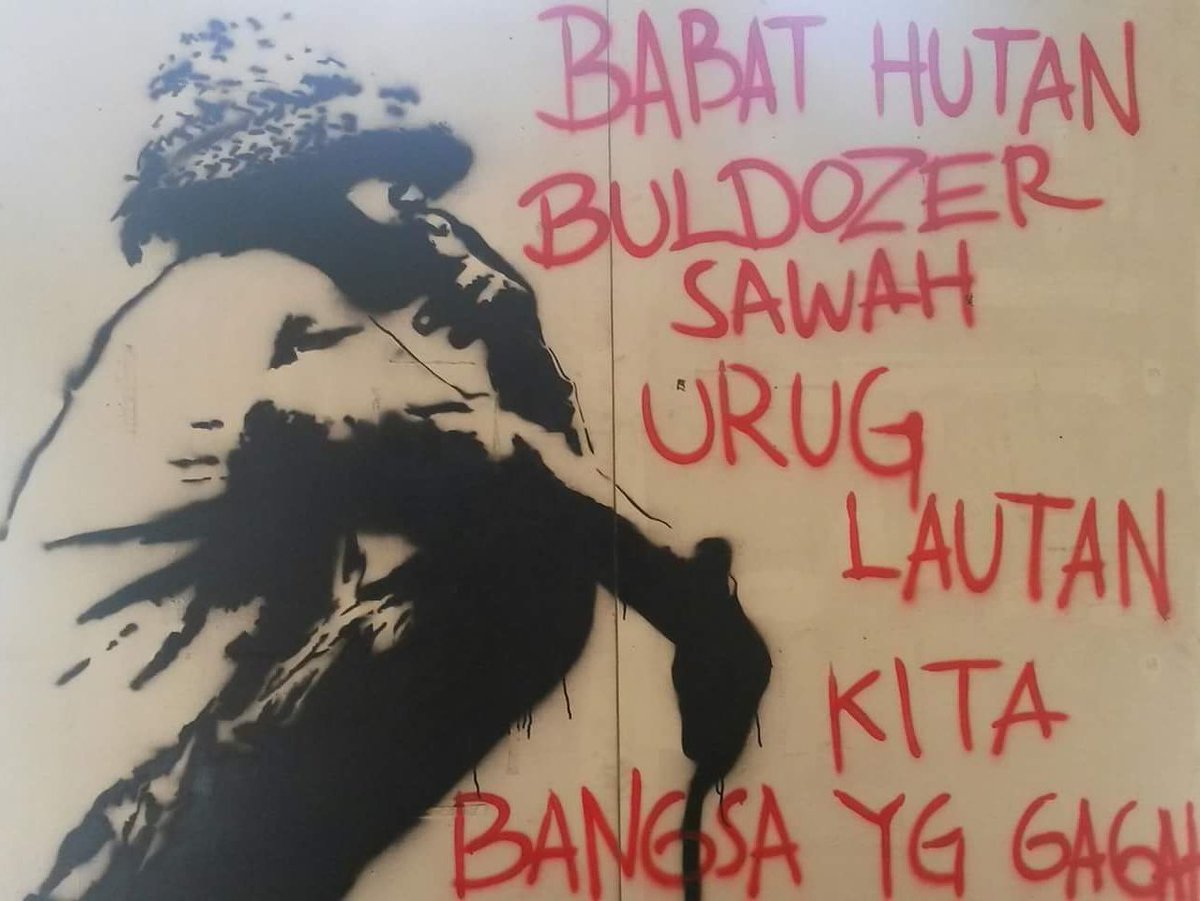 BABAT HUTAN
BULDOZER
SAWAH
URUG
LAUTAN
KITA
BANGSA YG GAGAH